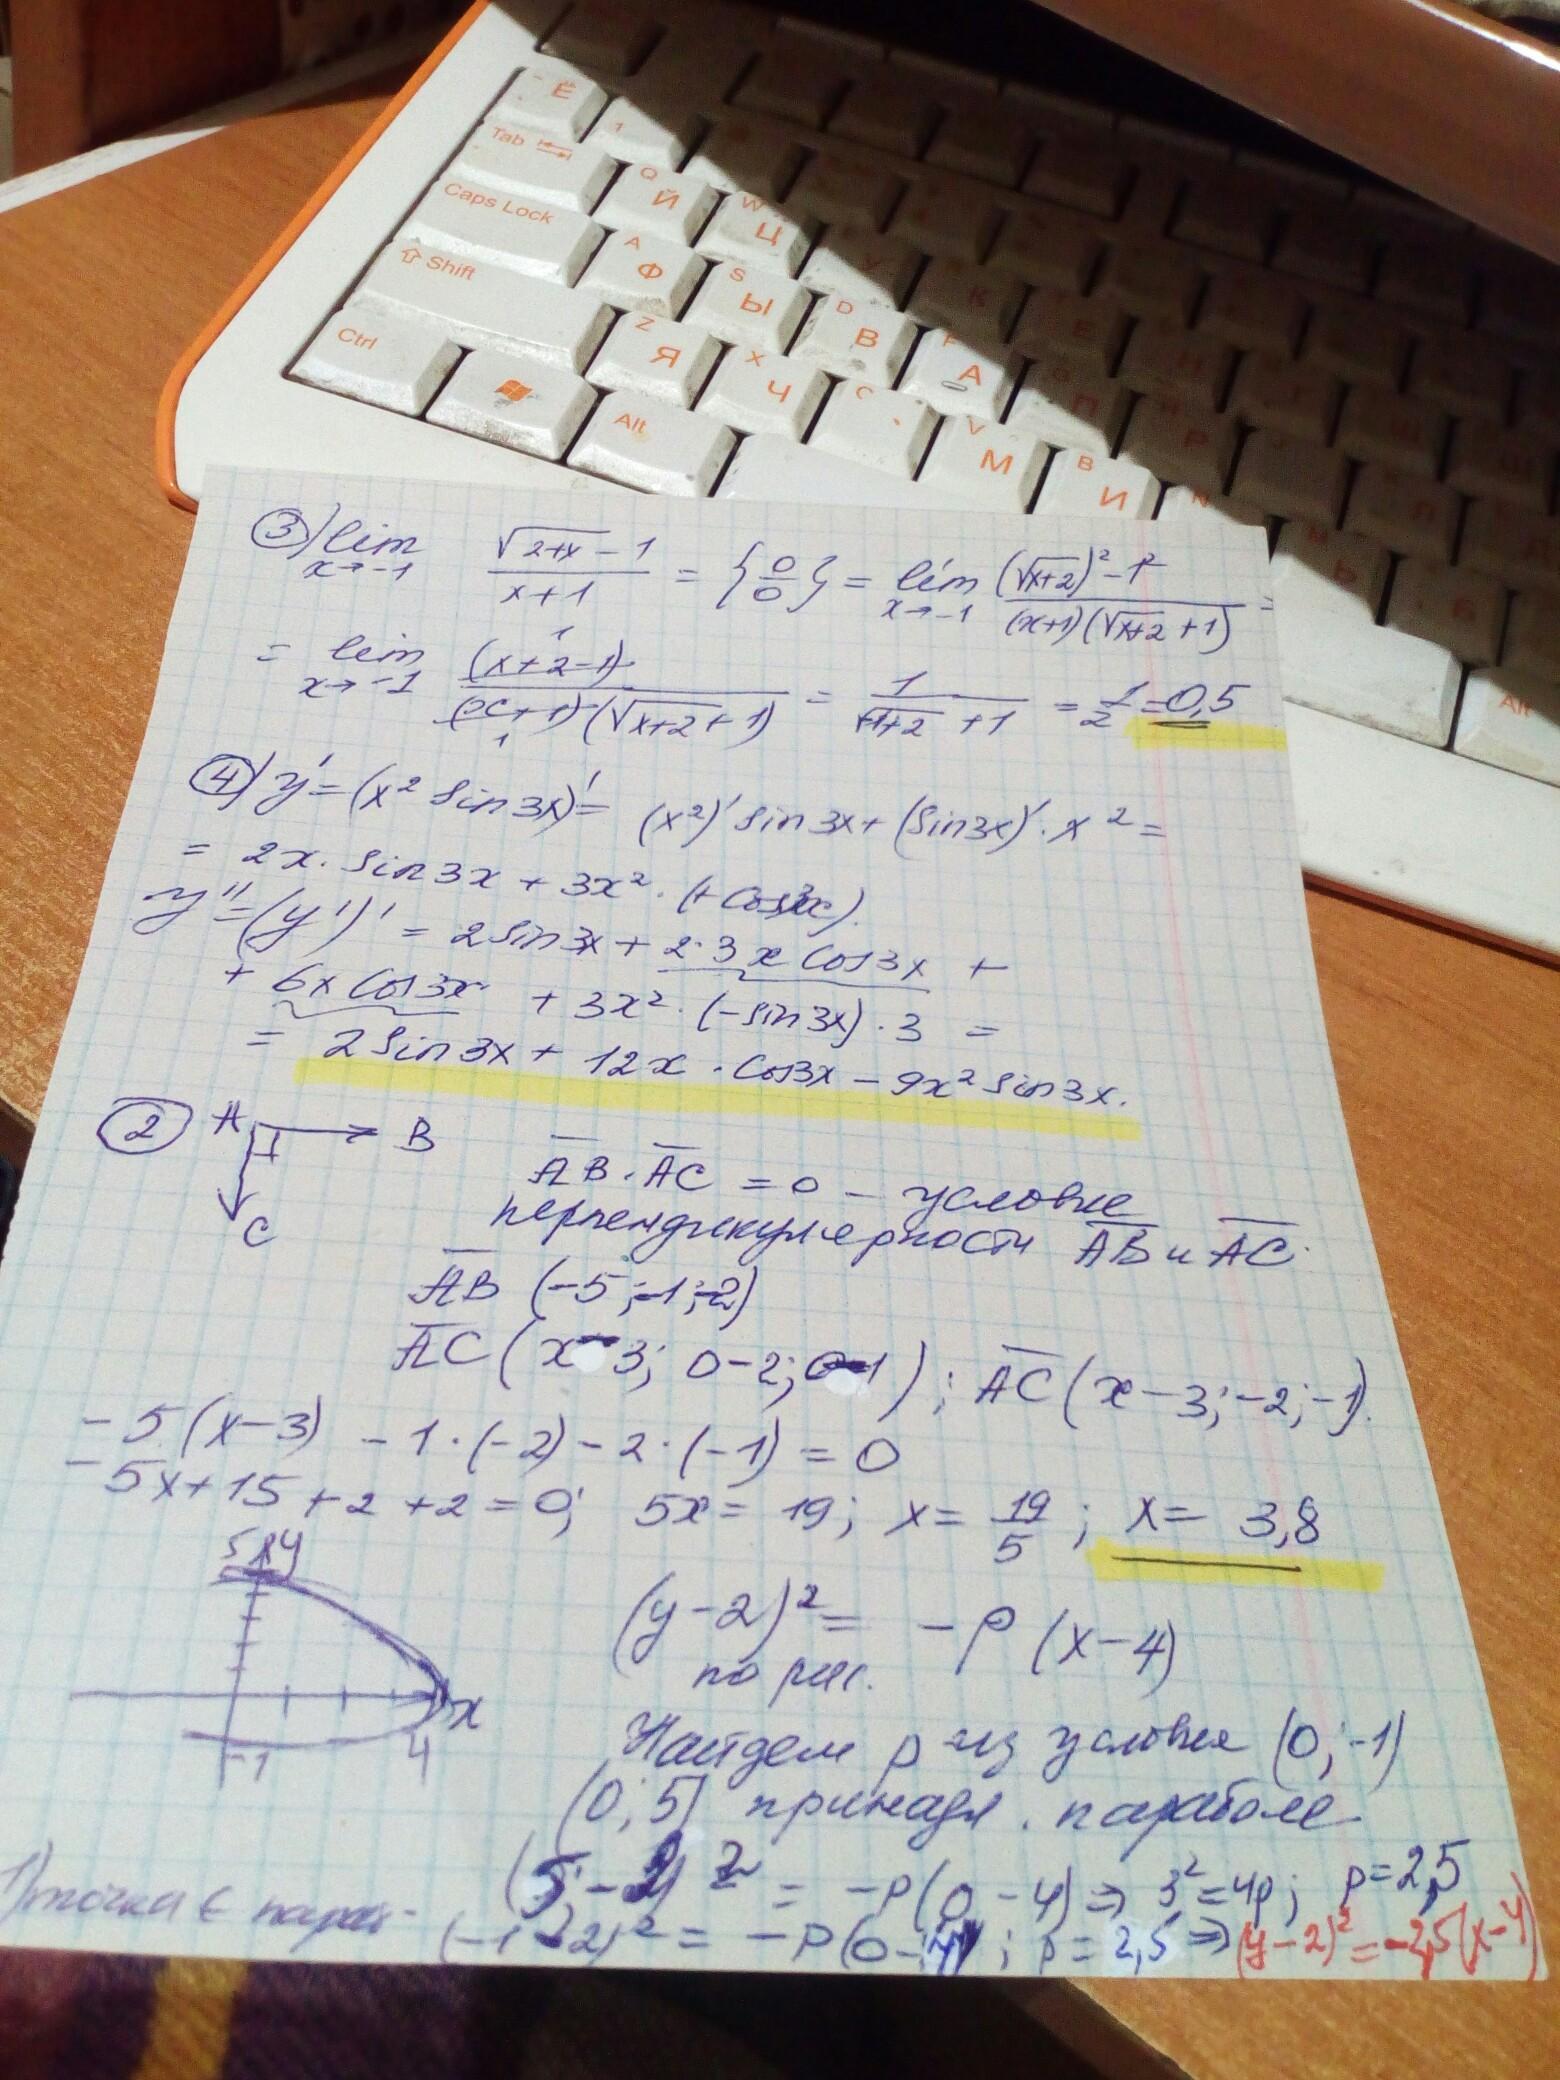 Ё
1
Tab
Q Й
W Ц
Caps Lock
A Ф
S Ы
D В
F А
Shift
Z Я
X Ч
C
V М
B И
Ctrl
Alt
Alt
③) lim x→-1 (√(2+x) - 1)/(x+1) = {0/0} = lim x→-1 ((√x+2)² - 1²)/((x+1)(√x+2 + 1)) =
= lim x→-1 (x+2-1)/((x+1)(√x+2 + 1)) = 1/(√-1+2 + 1) = 1/2 = 0,5
④) y' = (x² sin 3x)' = (x²)' sin 3x + (sin 3x)' · x² =
= 2x · sin 3x + 3x² · (+ cos 3x).
y'' = (y')' = 2 sin 3x + 2·3x cos 3x +
+ 6x cos 3x + 3x² · (-sin 3x) · 3 =
= 2 sin 3x + 12x · cos 3x - 9x² sin 3x.
② A B
C
AB · AC = 0 - условие
перпендикулярности AB и AC.
AB (-5; -1; -2)
AC (x-3; 0-2; 0-1); AC (x-3; -2; -1).
-5(x-3) -1·(-2) -2·(-1) = 0
-5x+15+2+2 = 0; 5x = 19; x = 19/5; x = 3,8
5 y
x
-1 4
(y-2)² = -p(x-4)
по рис.
Найдем p из условия (0; -1)
(0; 5) принадл. параболе
(5-2)² = -p(0-4) ⇒ 3² = 4p; p = 2,5
1) точка ∈ (-1-2)² = -p(0-4); p = 2,5 ⇒ (y-2)² = -2,5(x-4)